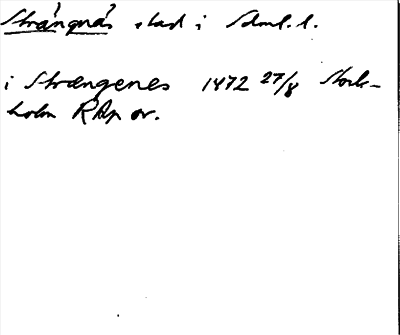 Strängnäs stad i Sdml. l.
i Strængenes 1472 27/8 Stock-
holm RAp or.